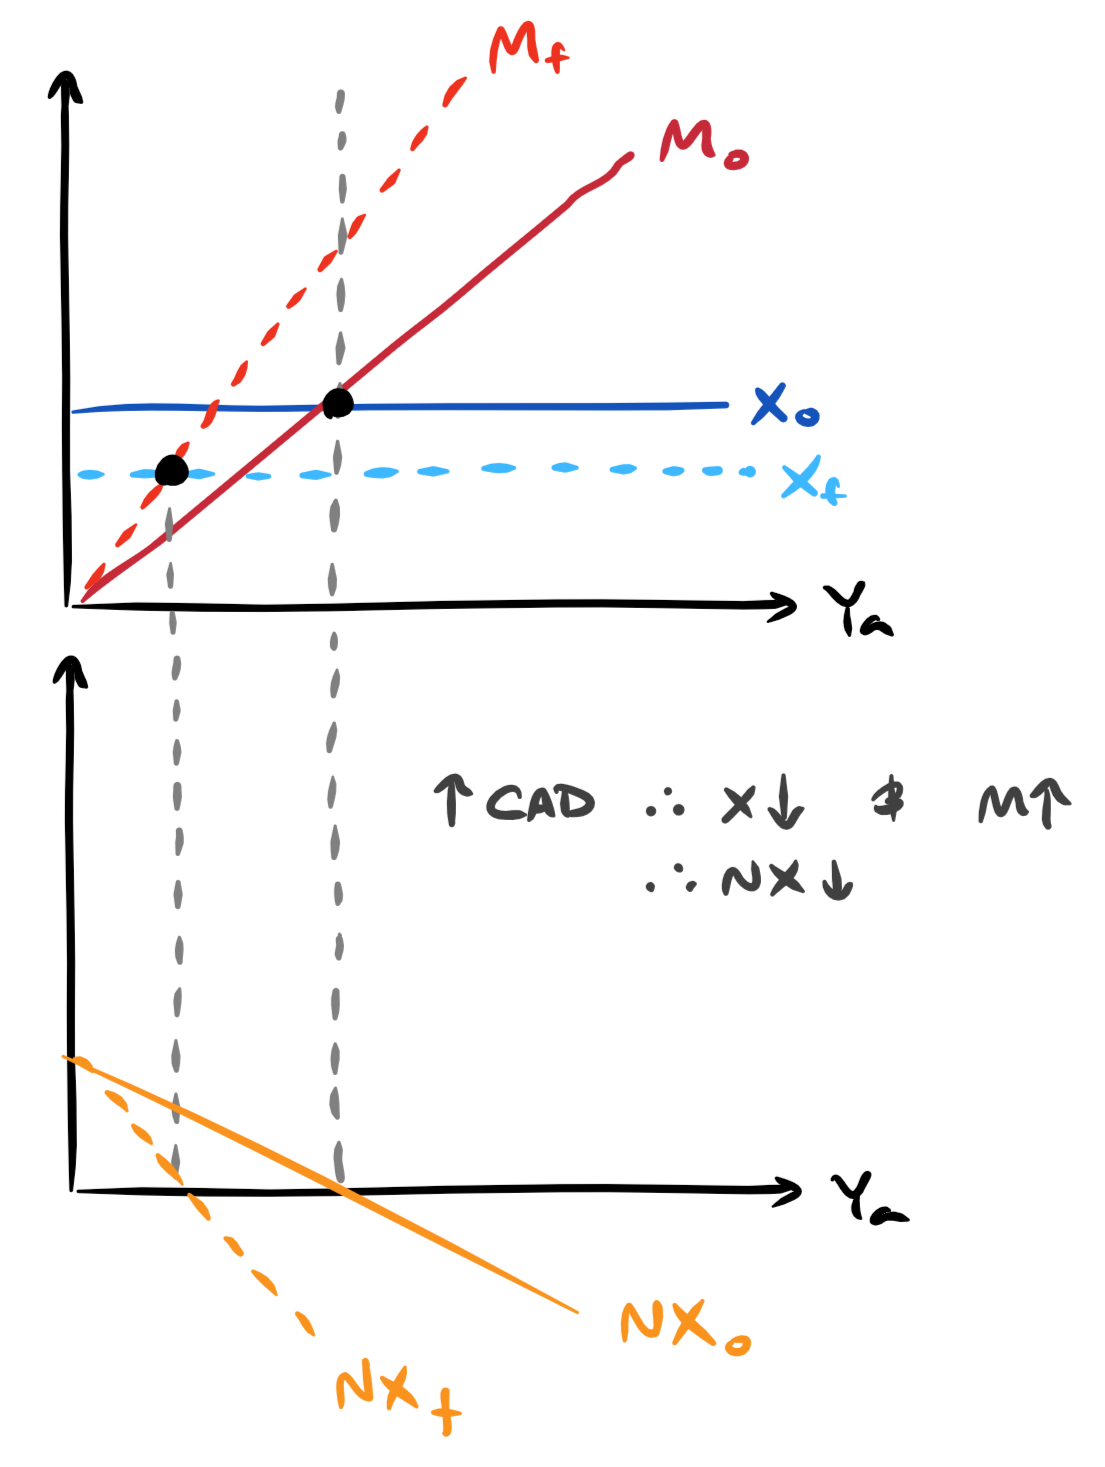 M_f
M_o
X_o
X_f
Y_a
↑ CAD ∴ X↓ & M↑
∴ NX↓
Y_a
NX_o
NX_f